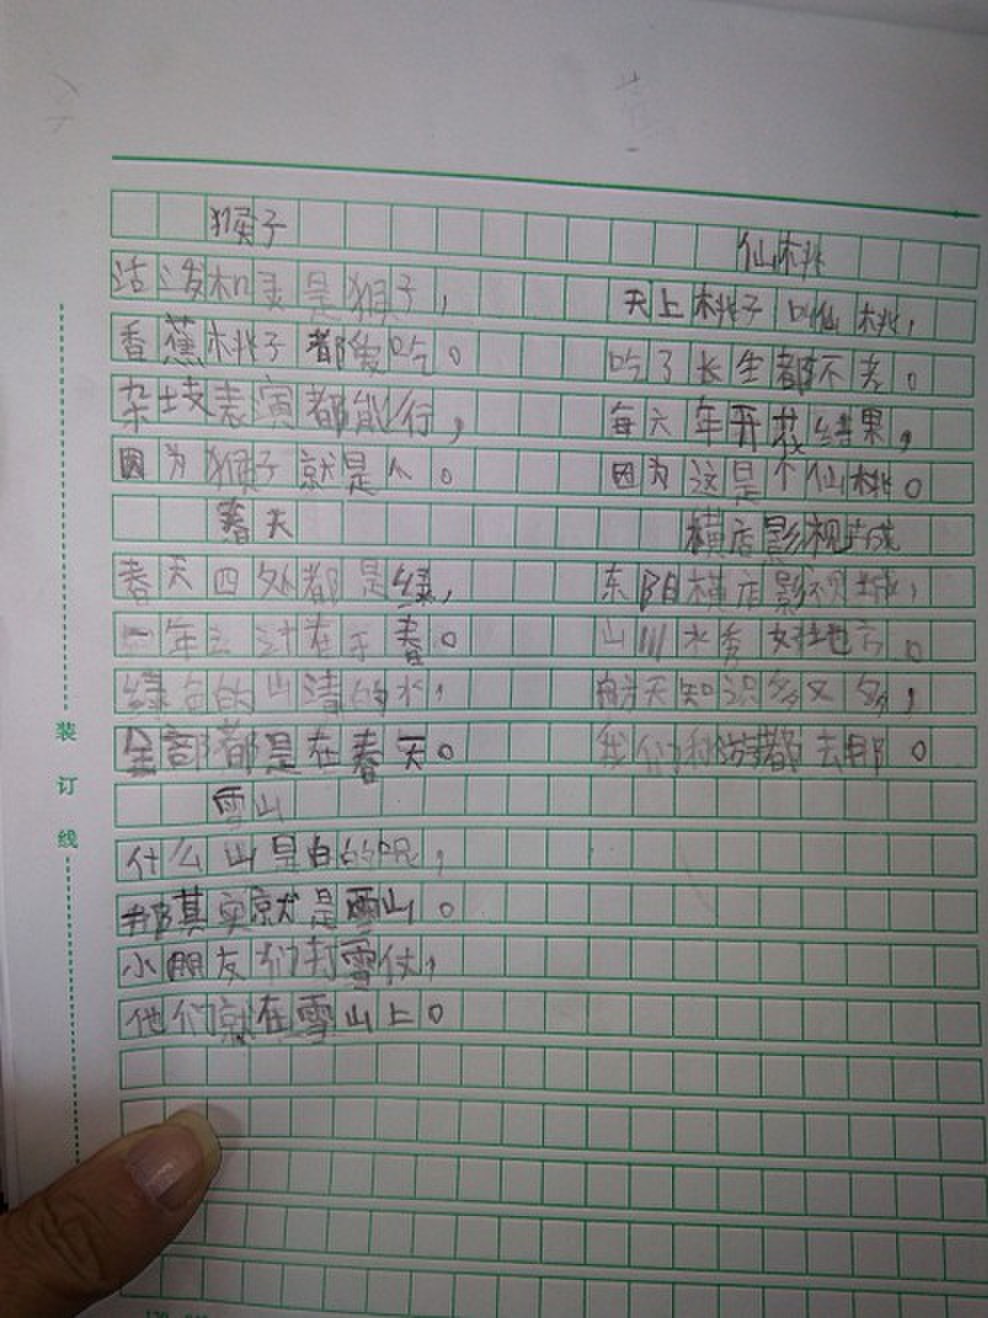 猴子
活泼和灵是猴子，
香蕉桃子都爱吃。
杂技表演都能行，
因为猴子就是人。
春天
春天四处都是绿，
一年之计在于春。
绿色的山清的水，
全部都是在春天。
雪山
什么山是白的呢，
那其实就是雪山。
小朋友们打雪仗，
他们就在雪山上。
仙桃
天上桃子叫仙桃，
吃了长生都不老。
每六年开花结果，
因为这是个仙桃。
横店影视城
东阳横店影视城，
山川水秀好地方。
航天知识多又多，
我们秋游都去那。
装订线